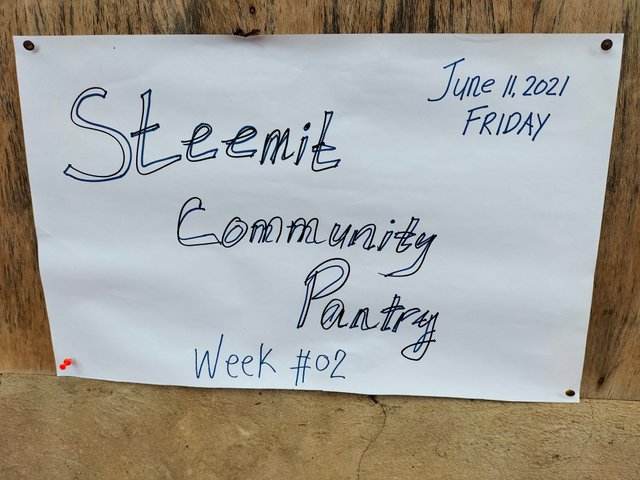 Steemit
June 11, 2021
FRIDAY
Community
Pantry
Week #02